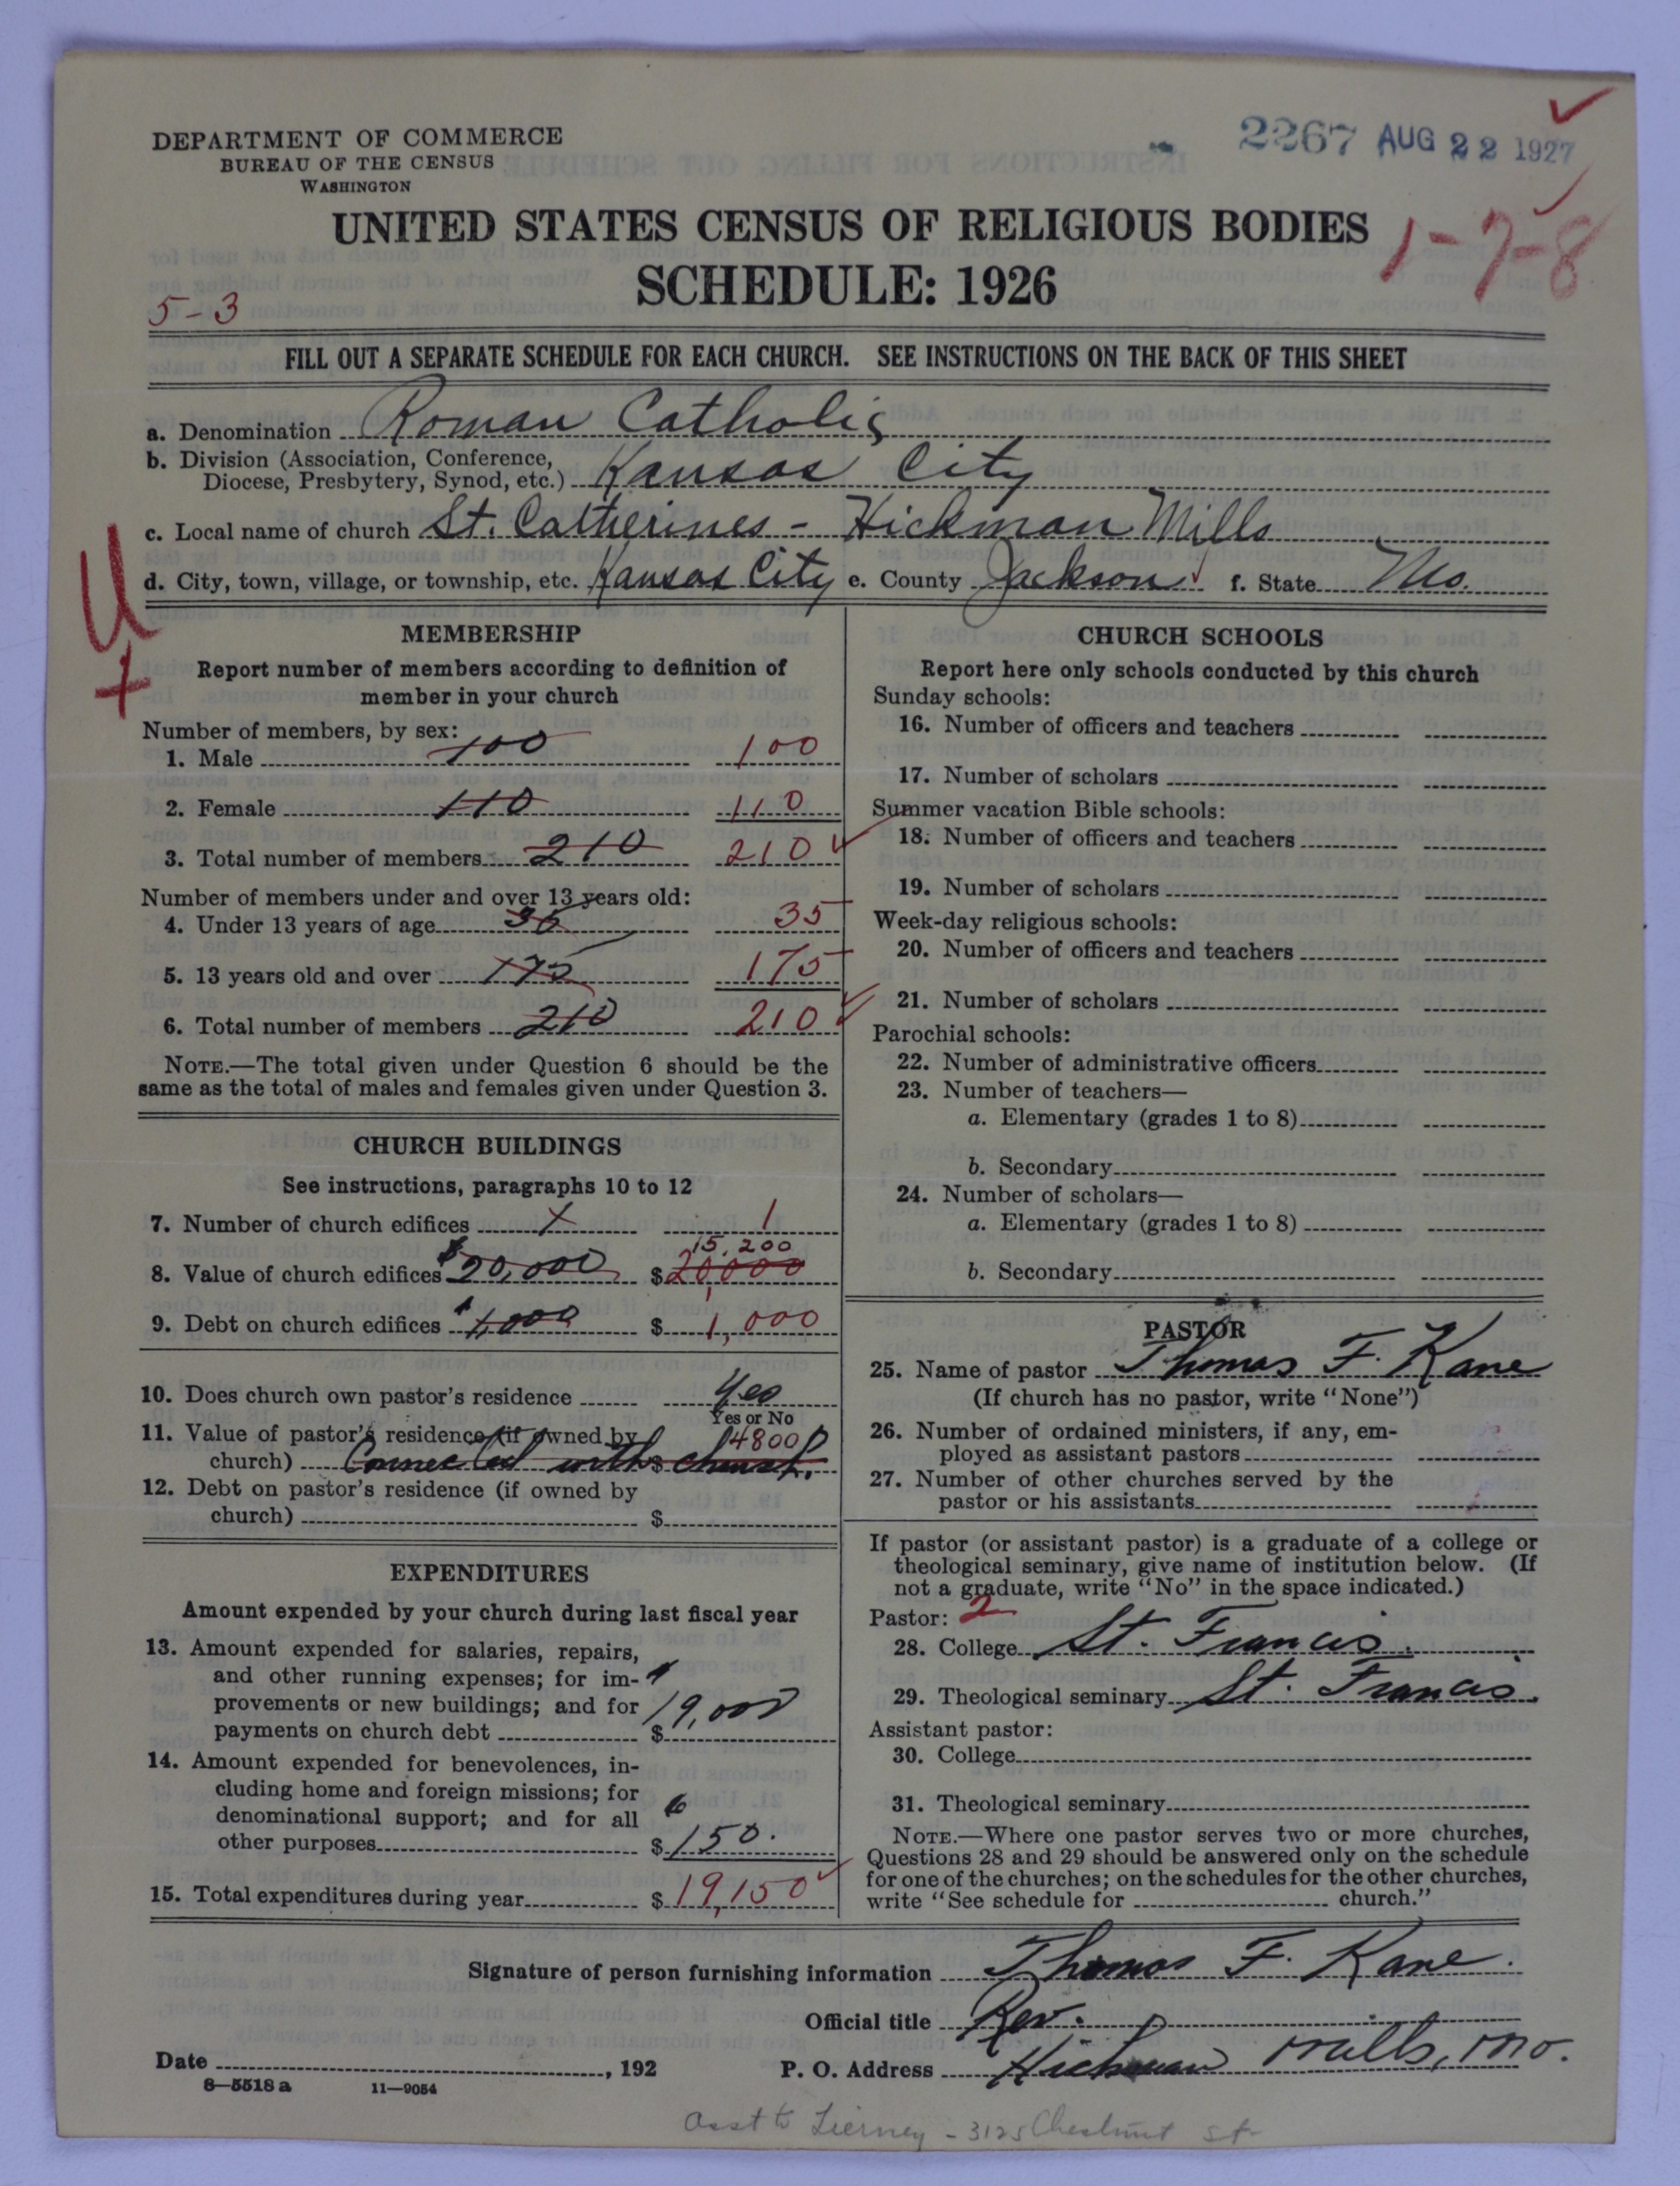 2267 AUG 22 1927
DEPARTMENT OF COMMERCE
BUREAU OF THE CENSUS
WASHINGTON
UNITED STATES CENSUS OF RELIGIOUS BODIES
1-7-8
SCHEDULE: 1926
5-3
FILL OUT A SEPARATE SCHEDULE FOR EACH CHURCH. SEE INSTRUCTIONS ON THE BACK OF THIS SHEET
a. Denomination Roman Catholic
b. Division (Association, Conference,
Diocese, Presbytery, Synod, etc.) Kansas City
c. Local name of church St. Catherines - Hickman Mills
d. City, town, village, or township, etc. Kansas City e. County Jackson f. State Mo.
U
MEMBERSHIP
Report number of members according to definition of
member in your church
Number of members, by sex:
1. Male 100 100
2. Female 110 110
3. Total number of members 210 210
Number of members under and over 13 years old:
4. Under 13 years of age 35 35
5. 13 years old and over 175 175
6. Total number of members 210 210
NOTE.—The total given under Question 6 should be the
same as the total of males and females given under Question 3.
CHURCH BUILDINGS
See instructions, paragraphs 10 to 12
7. Number of church edifices 1 1
15,200
8. Value of church edifices $20,000 $20,000
9. Debt on church edifices $1,000 $1,000
10. Does church own pastor's residence Yes
Yes or No
11. Value of pastor's residence (if owned by 4800
church) Connected with $ church.
12. Debt on pastor's residence (if owned by
church) $
EXPENDITURES
Amount expended by your church during last fiscal year
13. Amount expended for salaries, repairs,
and other running expenses; for im-
provements or new buildings; and for
payments on church debt $19,000
14. Amount expended for benevolences, in-
cluding home and foreign missions; for
denominational support; and for all
other purposes $150.
15. Total expenditures during year $19,150
CHURCH SCHOOLS
Report here only schools conducted by this church
Sunday schools:
16. Number of officers and teachers
17. Number of scholars
Summer vacation Bible schools:
18. Number of officers and teachers
19. Number of scholars
Week-day religious schools:
20. Number of officers and teachers
21. Number of scholars
Parochial schools:
22. Number of administrative officers
23. Number of teachers—
a. Elementary (grades 1 to 8)
b. Secondary
24. Number of scholars—
a. Elementary (grades 1 to 8)
b. Secondary
PASTOR
25. Name of pastor Thomas F. Kane
(If church has no pastor, write "None")
26. Number of ordained ministers, if any, em-
ployed as assistant pastors
27. Number of other churches served by the
pastor or his assistants
If pastor (or assistant pastor) is a graduate of a college or
theological seminary, give name of institution below. (If
not a graduate, write "No" in the space indicated.)
Pastor: 2
28. College St. Francis.
29. Theological seminary St. Francis.
Assistant pastor:
30. College
31. Theological seminary
NOTE.—Where one pastor serves two or more churches,
Questions 28 and 29 should be answered only on the schedule
for one of the churches; on the schedules for the other churches,
write "See schedule for church."
Signature of person furnishing information Thomas F. Kane.
Official title Rev.
Date , 192 P. O. Address Hickman Mills, Mo.
8—5518 a 11—9054
Asst to Tierney - 3125 Chestnut St-